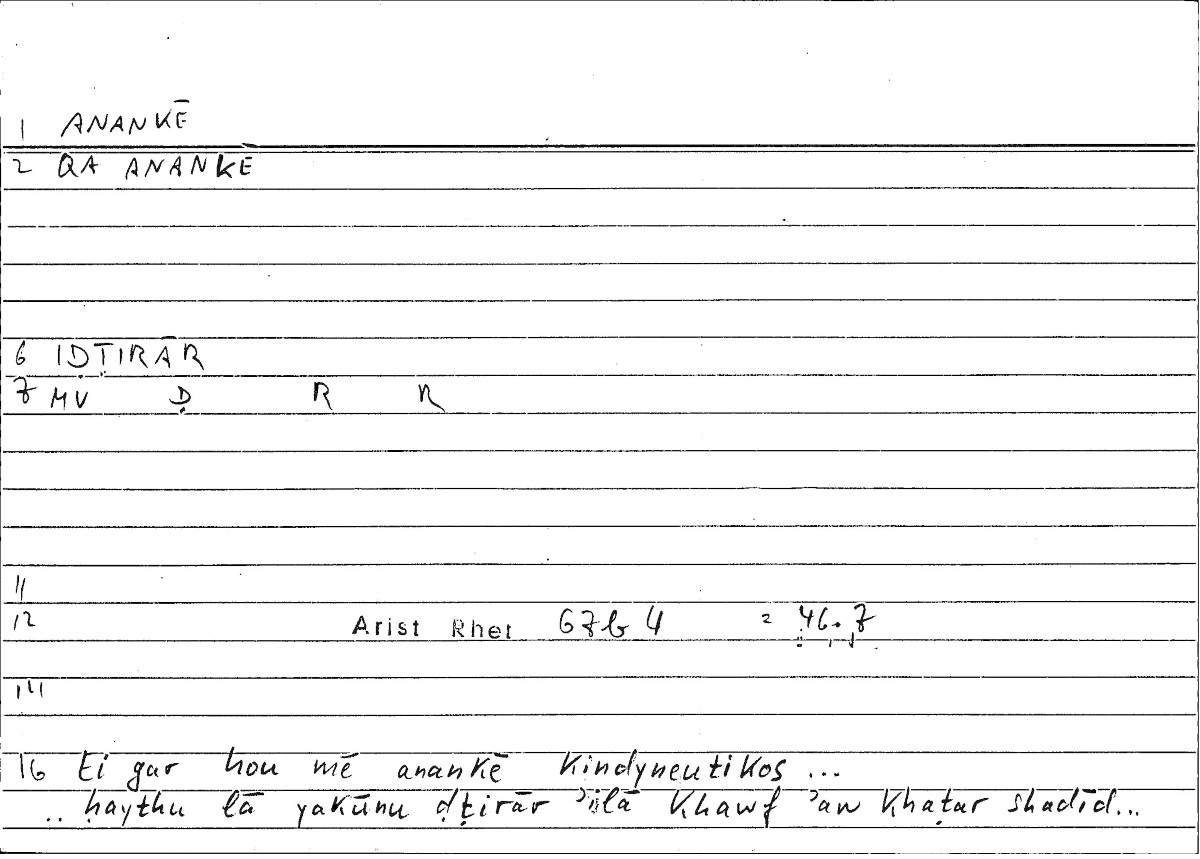 1 ANANKĒ
2 QA ANANKE
6 IḌṬIRĀR
7 MV Ḍ R R
11
12 Arist Rhet 67b 4 = 46.7
14
16 Ei gar hou mē anankē kindyneutikos ...
.. ḥaythu lā yakūnu ḍṭirār ʾilā khawf ʾaw khaṭar shadīd...